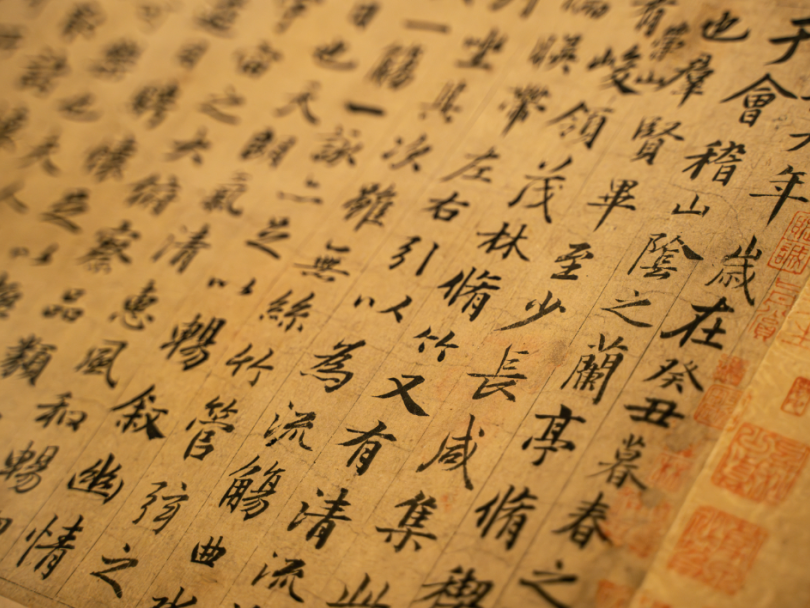 年歲在癸丑暮春之
于會稽山陰之蘭亭脩稧
也群賢畢至少長咸集此
有崇山峻領茂林脩竹又有清流
湍暎帶左右引以為流觴曲水
列坐其次雖無絲竹管弦之
一觴一詠亦足以暢叙幽情
日也天朗氣清惠風和暢
宙之大俯察品類
騁懷足以